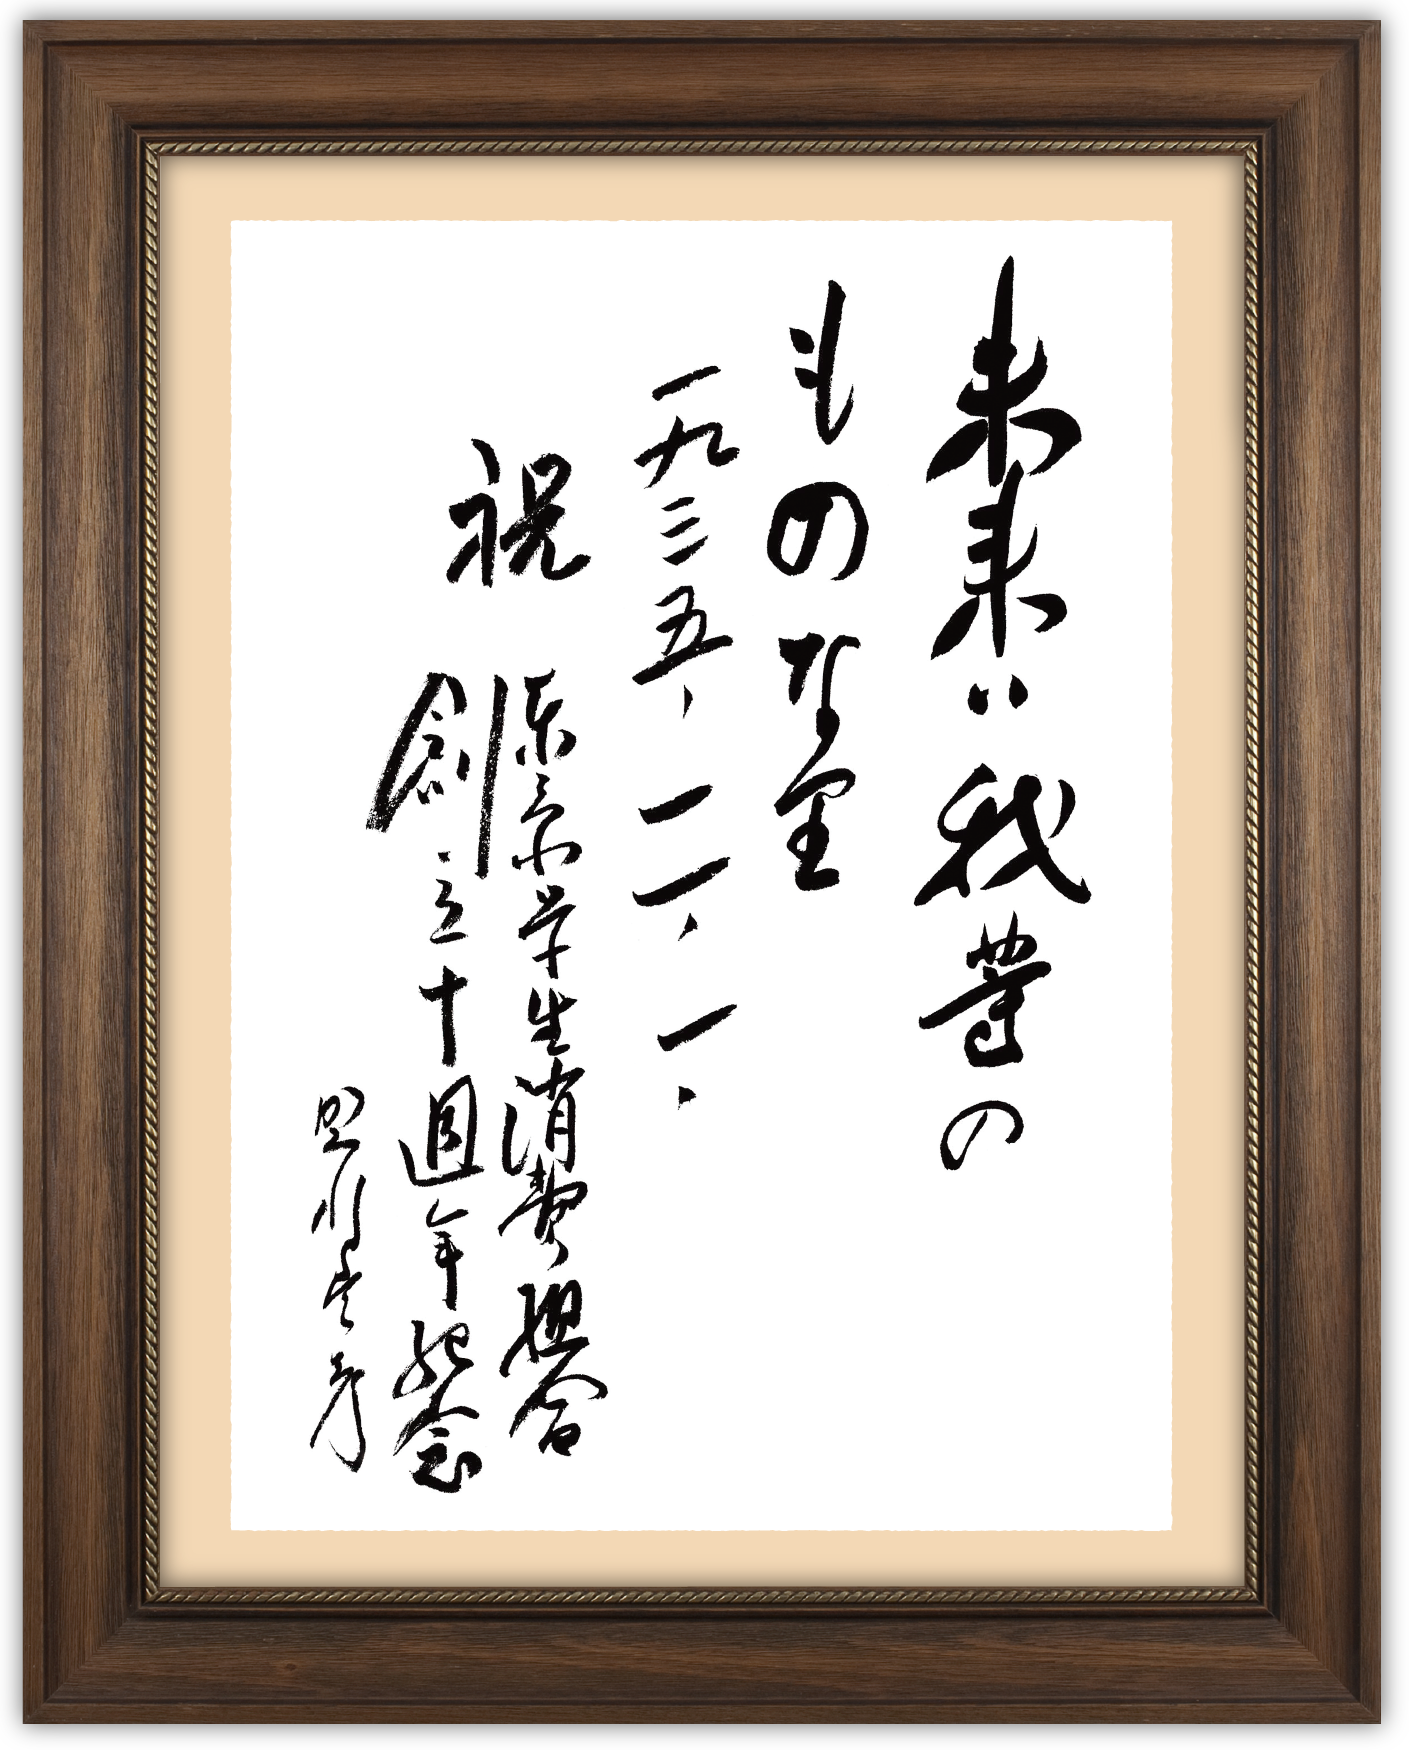 未来ハ我等の
ものなり
一九三五、一二、一、
祝
東京学生消費組合
創立十週年紀念
賀川豊彦